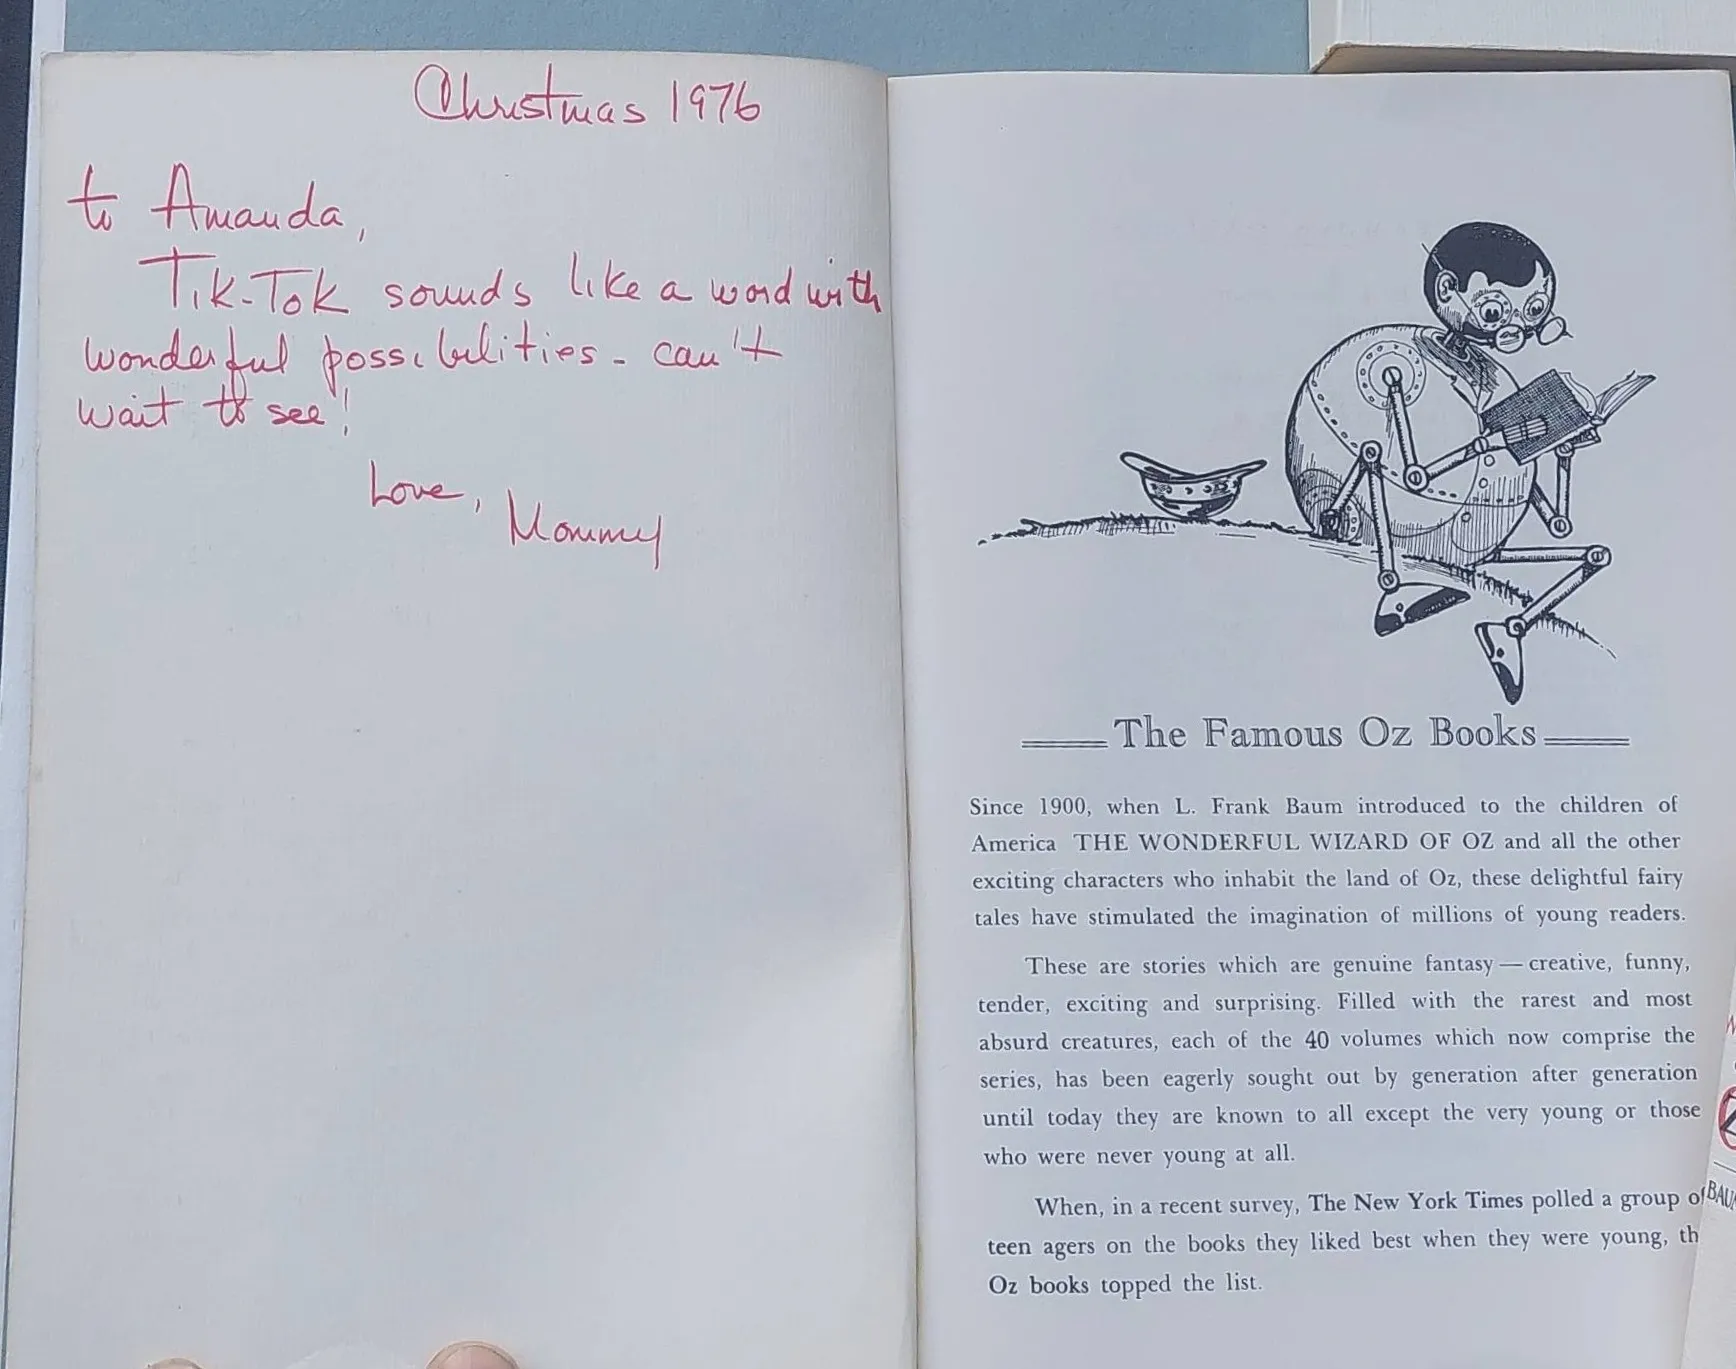 Christmas 1976
to Amanda,
Tik-Tok sounds like a word with
wonderful possibilities - can't
wait to see!
Love,
Mommy
The Famous Oz Books
Since 1900, when L. Frank Baum introduced to the children of
America THE WONDERFUL WIZARD OF OZ and all the other
exciting characters who inhabit the land of Oz, these delightful fairy
tales have stimulated the imagination of millions of young readers.
These are stories which are genuine fantasy — creative, funny,
tender, exciting and surprising. Filled with the rarest and most
absurd creatures, each of the 40 volumes which now comprise the
series, has been eagerly sought out by generation after generation
until today they are known to all except the very young or those
who were never young at all.
When, in a recent survey, The New York Times polled a group of
teen agers on the books they liked best when they were young, th
Oz books topped the list.
BAU